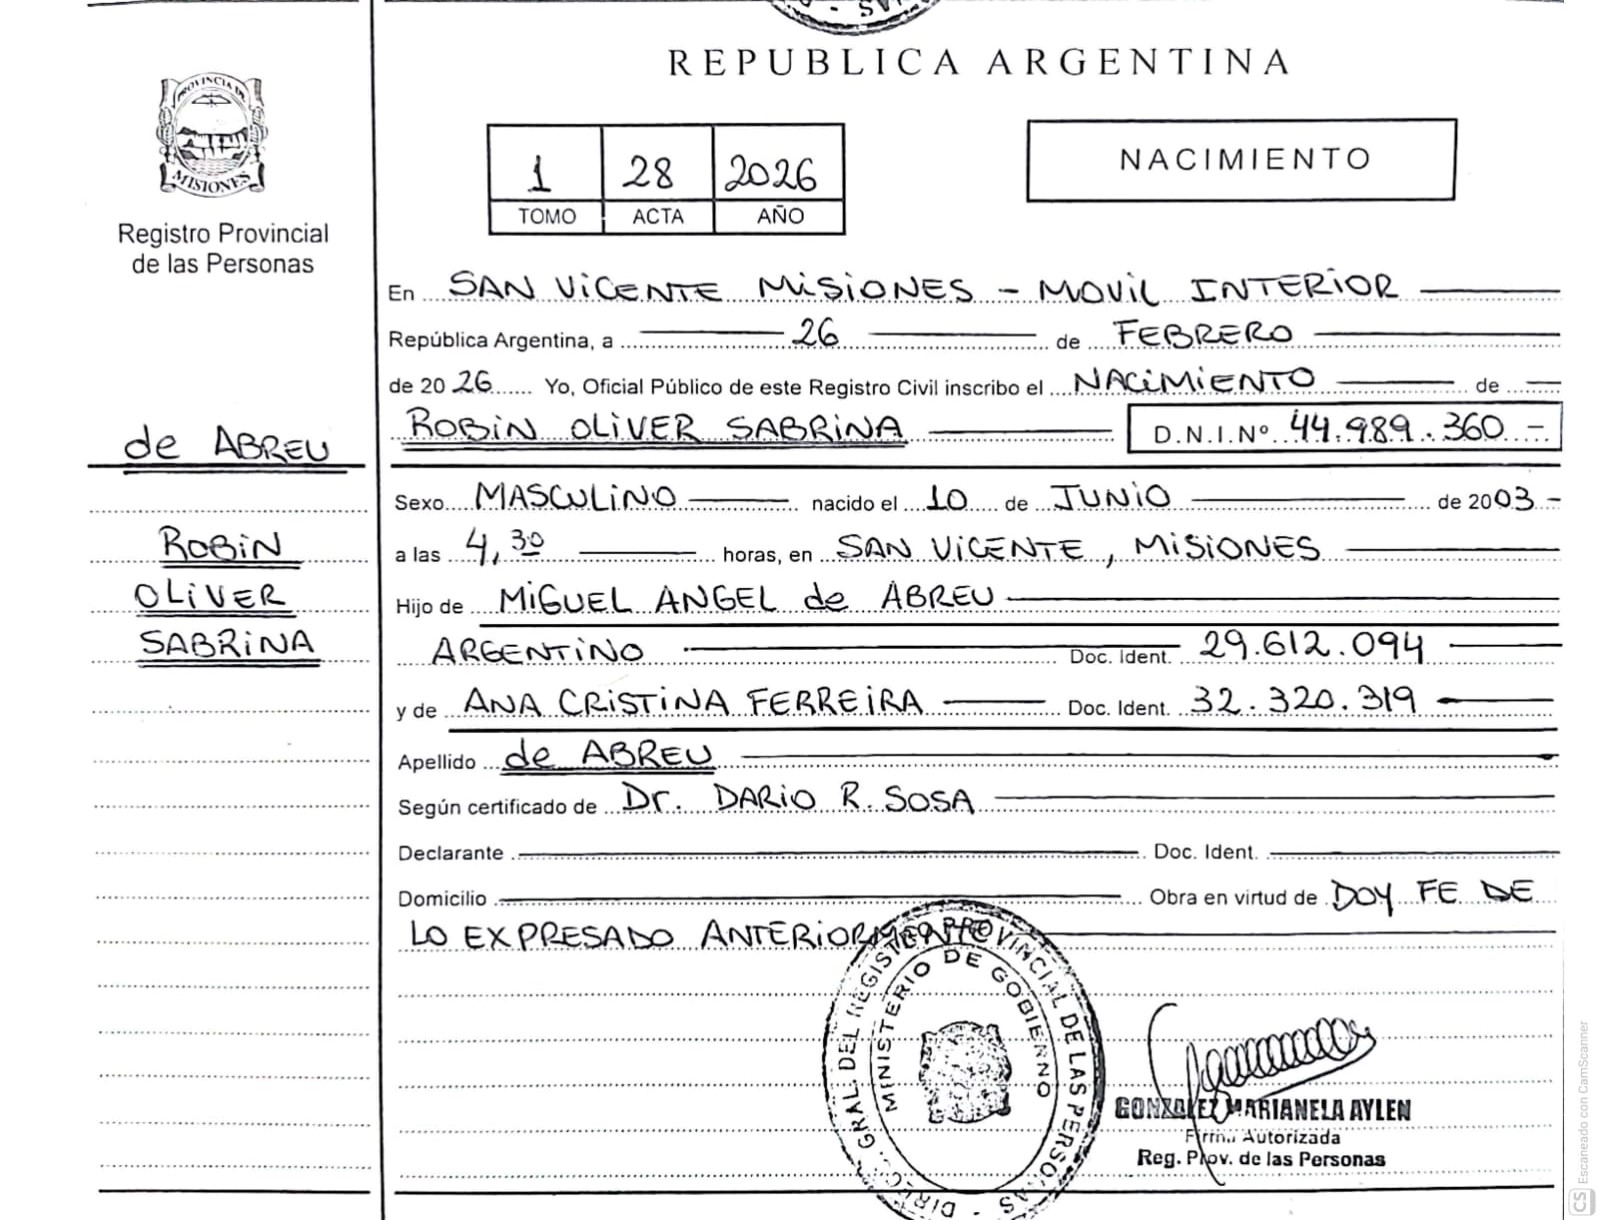 REPUBLICA ARGENTINA
PROVINCIA DE
MISIONES
Registro Provincial
de las Personas
1 28 2026
TOMO ACTA AÑO
NACIMIENTO
En SAN VICENTE MISIONES - MOVIL INTERIOR
República Argentina, a 26 de FEBRERO
de 2026 Yo, Oficial Público de este Registro Civil inscribo el NACIMIENTO de
ROBIN OLIVER SABRINA D.N.I.Nº 44.989.360 -
de ABREU
ROBIN
OLIVER
SABRINA
Sexo MASCULINO nacido el 10 de JUNIO de 2003 -
a las 4,30 horas, en SAN VICENTE, MISIONES
Hijo de MIGUEL ANGEL de ABREU
ARGENTINO Doc. Ident. 29.612.094
y de ANA CRISTINA FERREIRA Doc. Ident. 32.320.319
Apellido de ABREU
Según certificado de Dr. DARIO R. SOSA
Declarante Doc. Ident.
Domicilio Obra en virtud de DOY FE DE
LO EXPRESADO ANTERIORMENTE
GRAL. DEL REGISTRO PROVINCIAL DE LAS PERSONAS
MINISTERIO DE GOBIERNO
GONZALEZ MARIANELA AYLEN
Firma Autorizada
Reg. Prov. de las Personas
CS Escaneado con CamScanner